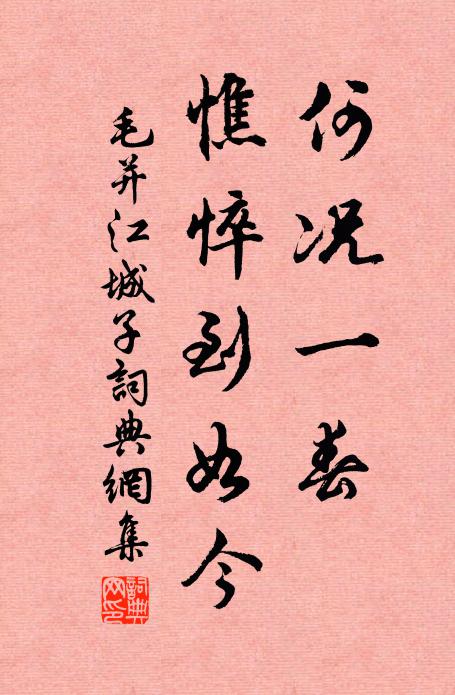 何况一春
憔悴到如今
毛并江城子詞典網集
詞典网印